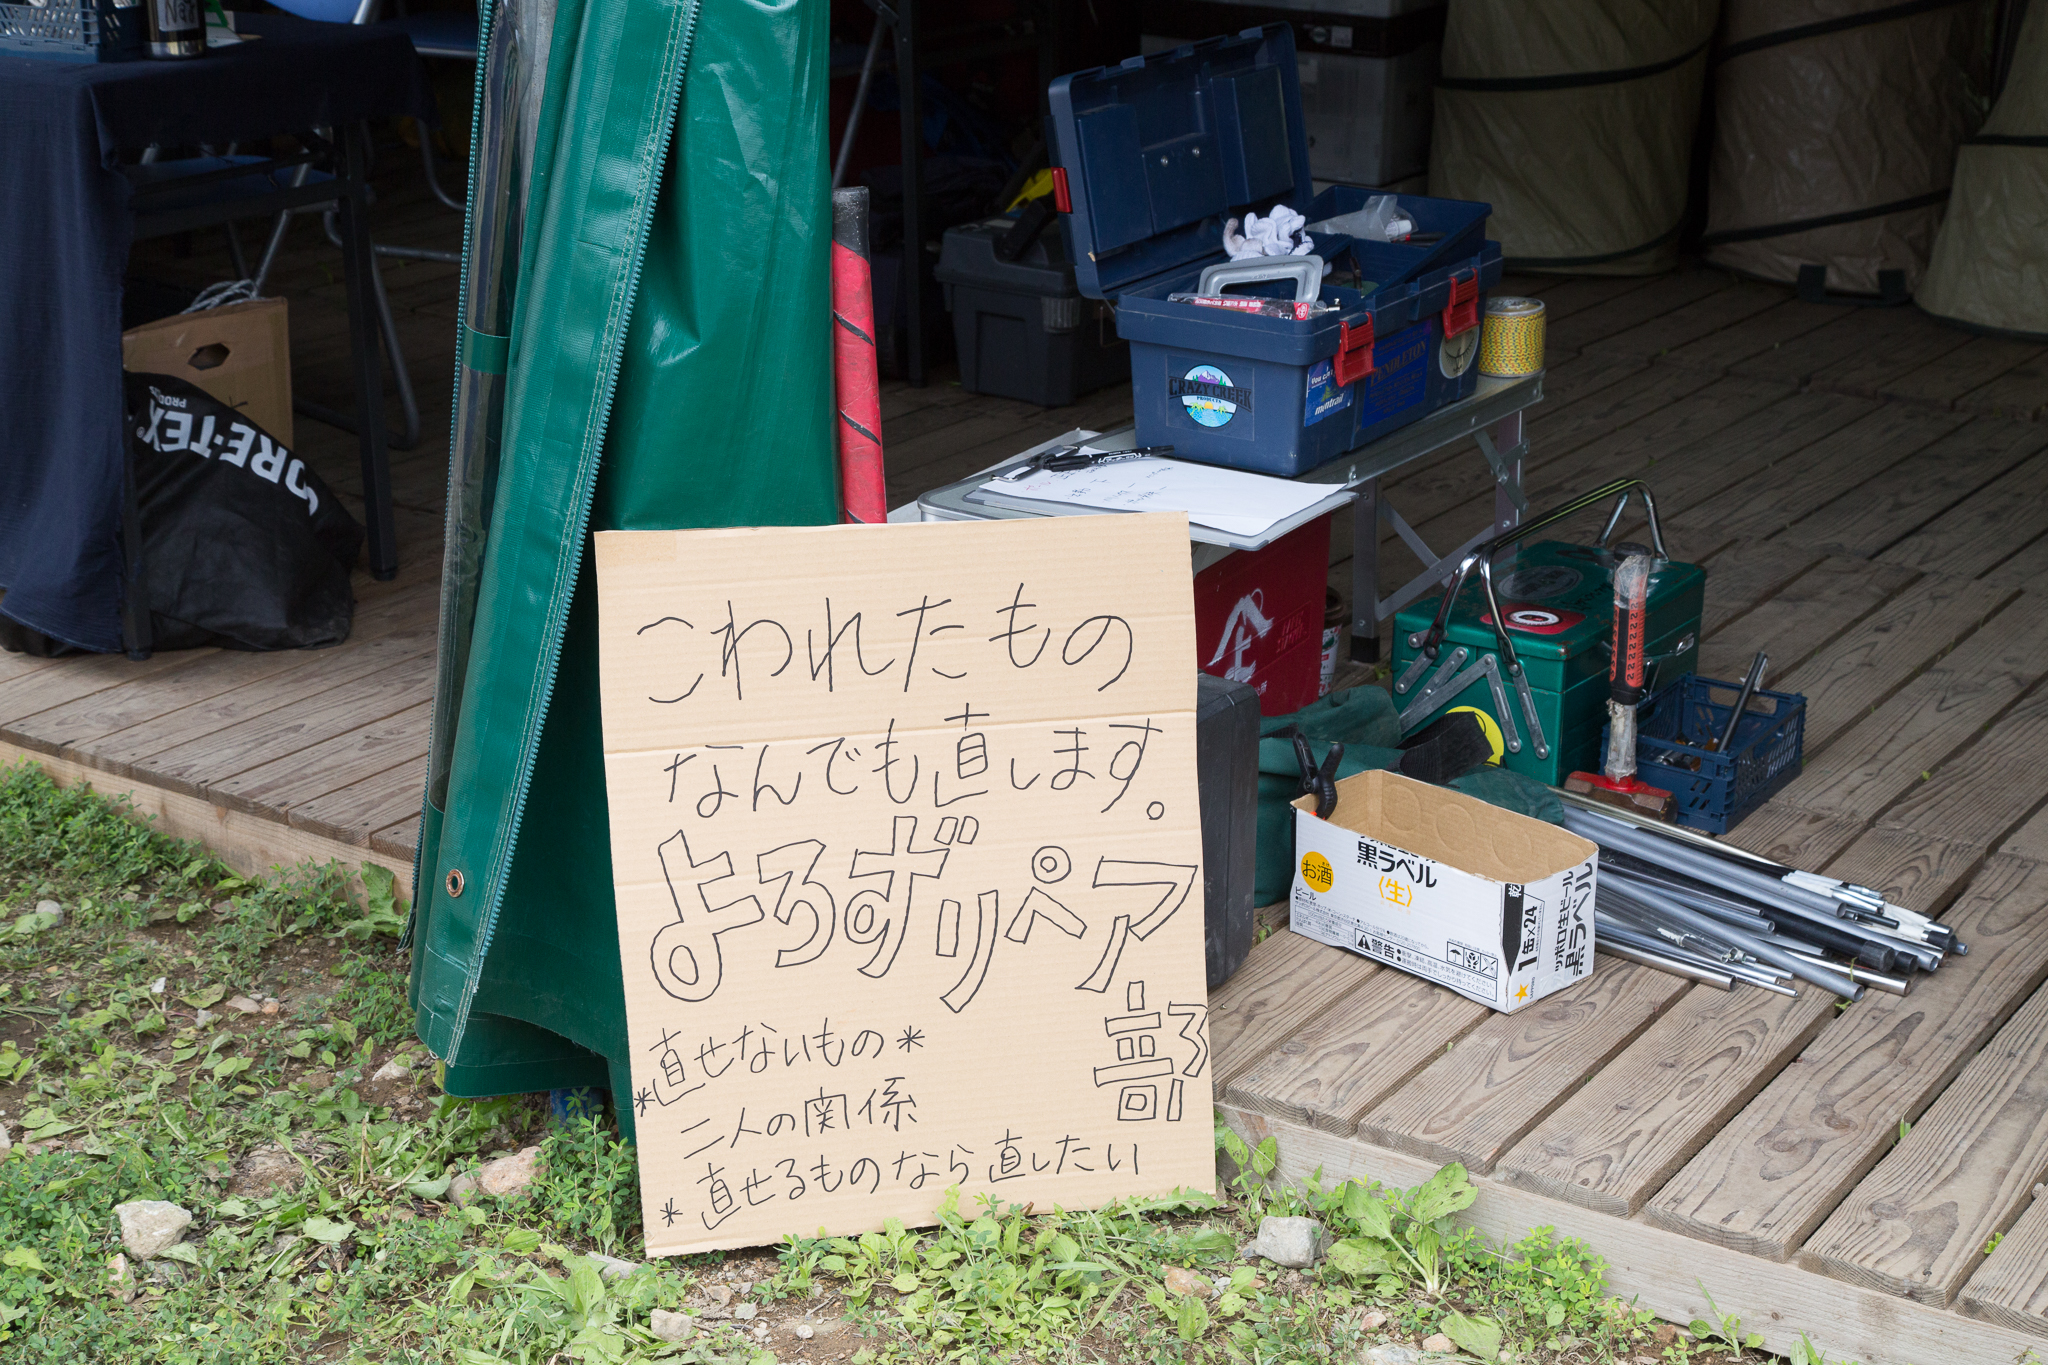 こわれたもの
なんでも直します。
よろずリペア
部
直せないもの*
*二人の関係
* 直せるものなら直したい
GORE-TEX
PROD
CRAZY CREEK
PRODUCTS
PENDLETON
montrail
黒ラベル
〈生〉
お酒
ビール
警告
1缶×24
サッポロ生ビール
黒ラベル